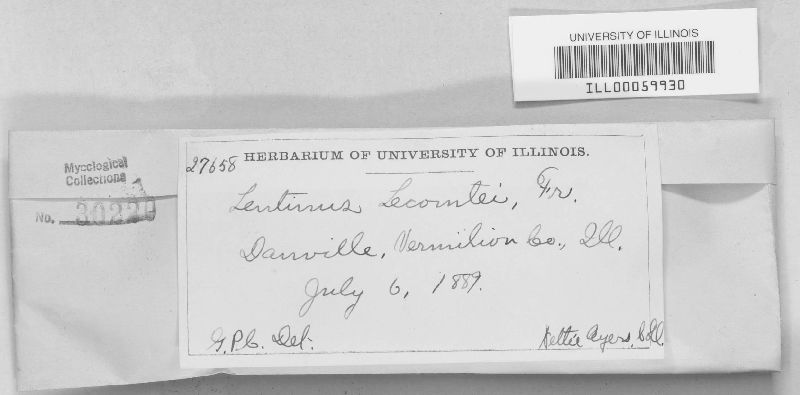 UNIVERSITY OF ILLINOIS
ILL00059930
Mycological
Collections
No. 30229
27658 HERBARIUM OF UNIVERSITY OF ILLINOIS.
Lentinus Lecomtei, Fr.
Danville, Vermilion Co., Ill.
July 6, 1889.
G.P.C. Det. Nettie Ayers, Coll.